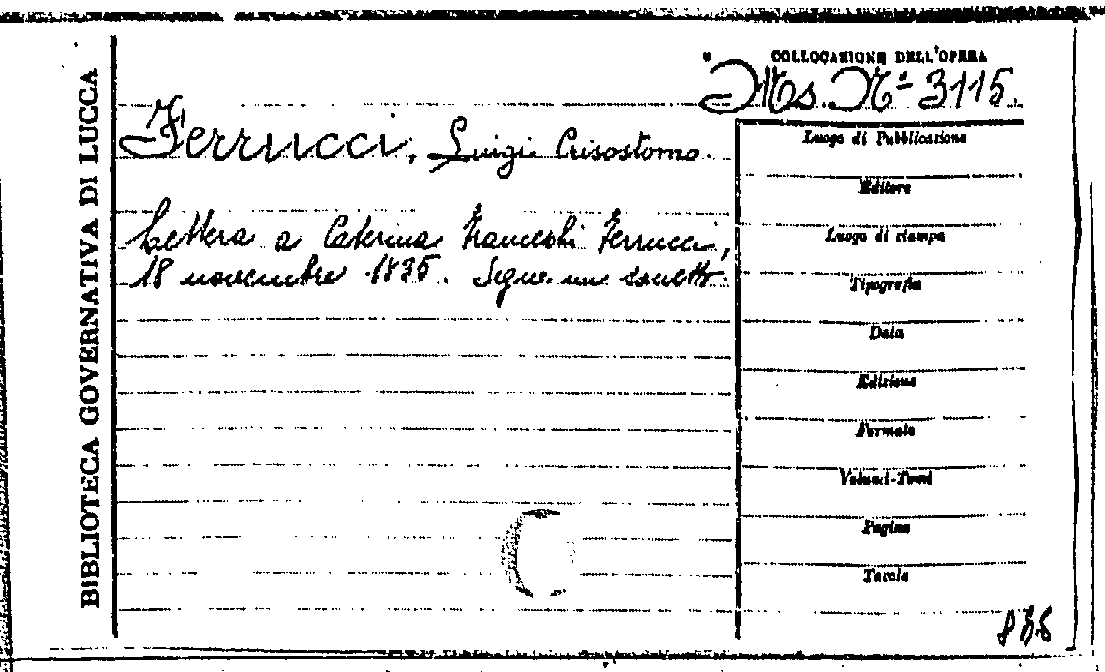 BIBLIOTECA GOVERNATIVA DI LUCCA
COLLOCAZIONE DELL'OPERA
Ms. Nº 3115.
Ferrucci, Luigi Crisostomo.
Lettera a Caterina Franceschi Ferrucci,
18 novembre 1835. Segue un sonetto.
Luogo di Pubblicazione
Editore
Luogo di stampa
Tipografia
Data
Edizione
Formato
Volumi-Tomi
Pagine
Tavole